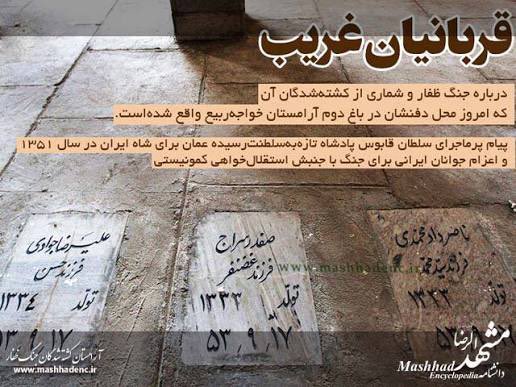 قربانیان غریب
درباره جنگ ظفار و شماری از کشته‌شدگان آن
که امروز محل دفنشان در باغ دوم آرامستان خواجه‌ربیع واقع شده‌است.
پیام پرماجرای سلطان قابوس پادشاه تازه‌به‌سلطنت‌رسیده عمان برای شاه ایران در سال ۱۳۵۱
و اعزام جوانان ایرانی برای جنگ با جنبش استقلال‌خواهی کمونیستی
ناصر داد محمدی
فرزند سید محمد
۱۳۳۳ تولد
۵۳
صفدر سراج
فرزند غضنفر
تولد ۱۳۳۳
۵۳ ٫ ۹ ٫ ۱۷
علیرضا جوادی
فرزند حسن
تولد ۱۳۳۴
۵۳ ٫ ۹ ٫ ۱۷
www.mashhadenc.ir
مشهدالرضا
Mashhad
Encyclopedia دانشنامه
آرامستان کشته‌شدگان جنگ ظفار
www.mashhadenc.ir